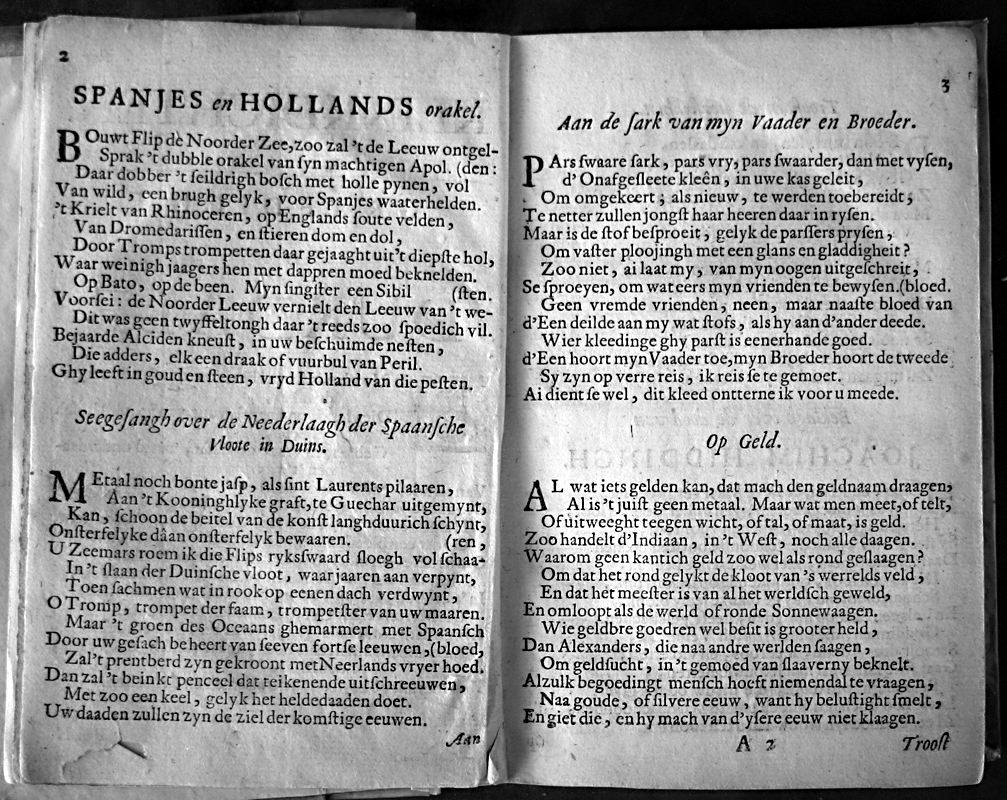 2
SPANJES en HOLLANDS orakel.
BOuwt Flip de Noorder Zee, zoo zal 't de Leeuw ontgel-
Sprak 't dubble orakel van ſyn machtigen Apol. (den:
Daar dobber 't ſeildrigh boſch met holle pynen, vol
Van wild, een brugh gelyk, voor Spanjes waaterhelden.
't Krielt van Rhinoceren, op Englands ſoute velden,
Van Dromedariſſen, en ſtieren dom en dol,
Door Tromps trompetten daar gejaaght uit't diepſte hol,
Waar weinigh jaagers hen met dappren moed beknelden.
Op Bato, op de been. Myn ſingſter een Sibil (ſten.
Voorſei: de Noorder Leeuw vernielt den Leeuw van 't we-
Dit was geen twyffeltongh daar 't reeds zoo ſpoedich vil.
Bejaarde Alciden kneuſt, in uw beſchuimde neſten,
Die adders, elk een draak of vuurbul van Peril.
Ghy leeft in goud en ſteen, vryd Holland van die peſten.
Seegeſangh over de Neederlaagh der Spaanſche
Vloote in Duins.
MEtaal noch bonte jaſp, als ſint Laurents pilaaren,
Aan 't Kooninghlyke graft, te Guechar uitgemynt,
Kan, ſchoon de beitel van de konſt langhduurich ſchynt,
Onſterfelyke dâan onſterfelyk bewaaren. (ren,
U Zeemars roem ik die Flips ryksſwaard ſloegh vol ſchaa-
In 't ſlaan der Duinſche vloot, waar jaaren aan verpynt,
Toen ſachmen wat in rook op eenen dach verdwynt,
O Tromp, trompet der faam, trompetſter van uw maaren.
Maar 't groen des Oceaans ghemarmert met Spaanſch
Door uw geſach beheert van ſeeven fortſe leeuwen, (bloed,
Zal't prentberd zyn gekroont met Neerlands vryer hoed.
Dan zal 't beinkt penceel dat teikenende uitſchreeuwen,
Met zoo een keel, gelyk het heldedaaden doet.
Uw daaden zullen zyn de ziel der komſtige eeuwen.
Aan
3
Aan de ſark van myn Vaader en Broeder.
PArs ſwaare ſark, pars vry, pars ſwaarder, dan met vyſen,
d' Onafgeſleete kleên, in uwe kas geleit,
Om omgekeert, als nieuw, te werden toebereidt;
Te netter zullen jongſt haar heeren daar in ryſen.
Maar is de ſtof beſproeit, gelyk de parſſers pryſen,
Om vaſter ploojingh met een glans en gladdigheit?
Zoo niet, ai laat my, van myn oogen uitgeſchreit,
Se ſproeyen, om wat eers myn vrienden te bewyſen. (bloed.
Geen vremde vrienden, neen, maar naaſte bloed van
d'Een deilde aan my wat ſtofs, als hy aan d'ander deede.
Wier kleedinge ghy parſt is eenerhande goed.
d'Een hoort myn Vaader toe, myn Broeder hoort de tweede
Sy zyn op verre reis, ik reis ſe te gemoet.
Ai dient ſe wel, dit kleed ontterne ik voor u meede.
Op Geld.
AL wat iets gelden kan, dat mach den geldnaam draagen,
Al is 't juiſt geen metaal. Maar wat men meet, of telt,
Of uitweeght teegen wicht, of tal, of maat, is geld.
Zoo handelt d'Indiaan, in 't Weſt, noch alle daagen.
Waarom geen kantich geld zoo wel als rond geſlaagen?
Om dat het rond gelykt de kloot van 's werrelds veld,
En dat het meeſter is van al het werldſch geweld,
En omloopt als de werld of ronde Sonnewaagen.
Wie geldbre goedren wel beſit is grooter held,
Dan Alexanders, die naa andre werlden ſaagen,
Om geldſucht, in 't gemoed van ſlaaverny beknelt.
Alzulk begoedingt menſch hoeft niemendal te vraagen,
Naa goude, of ſilvere eeuw, want hy beluſtight ſmelt,
En giet die, en hy mach van d'yſere eeuw niet klaagen.
A 2 Trooſt